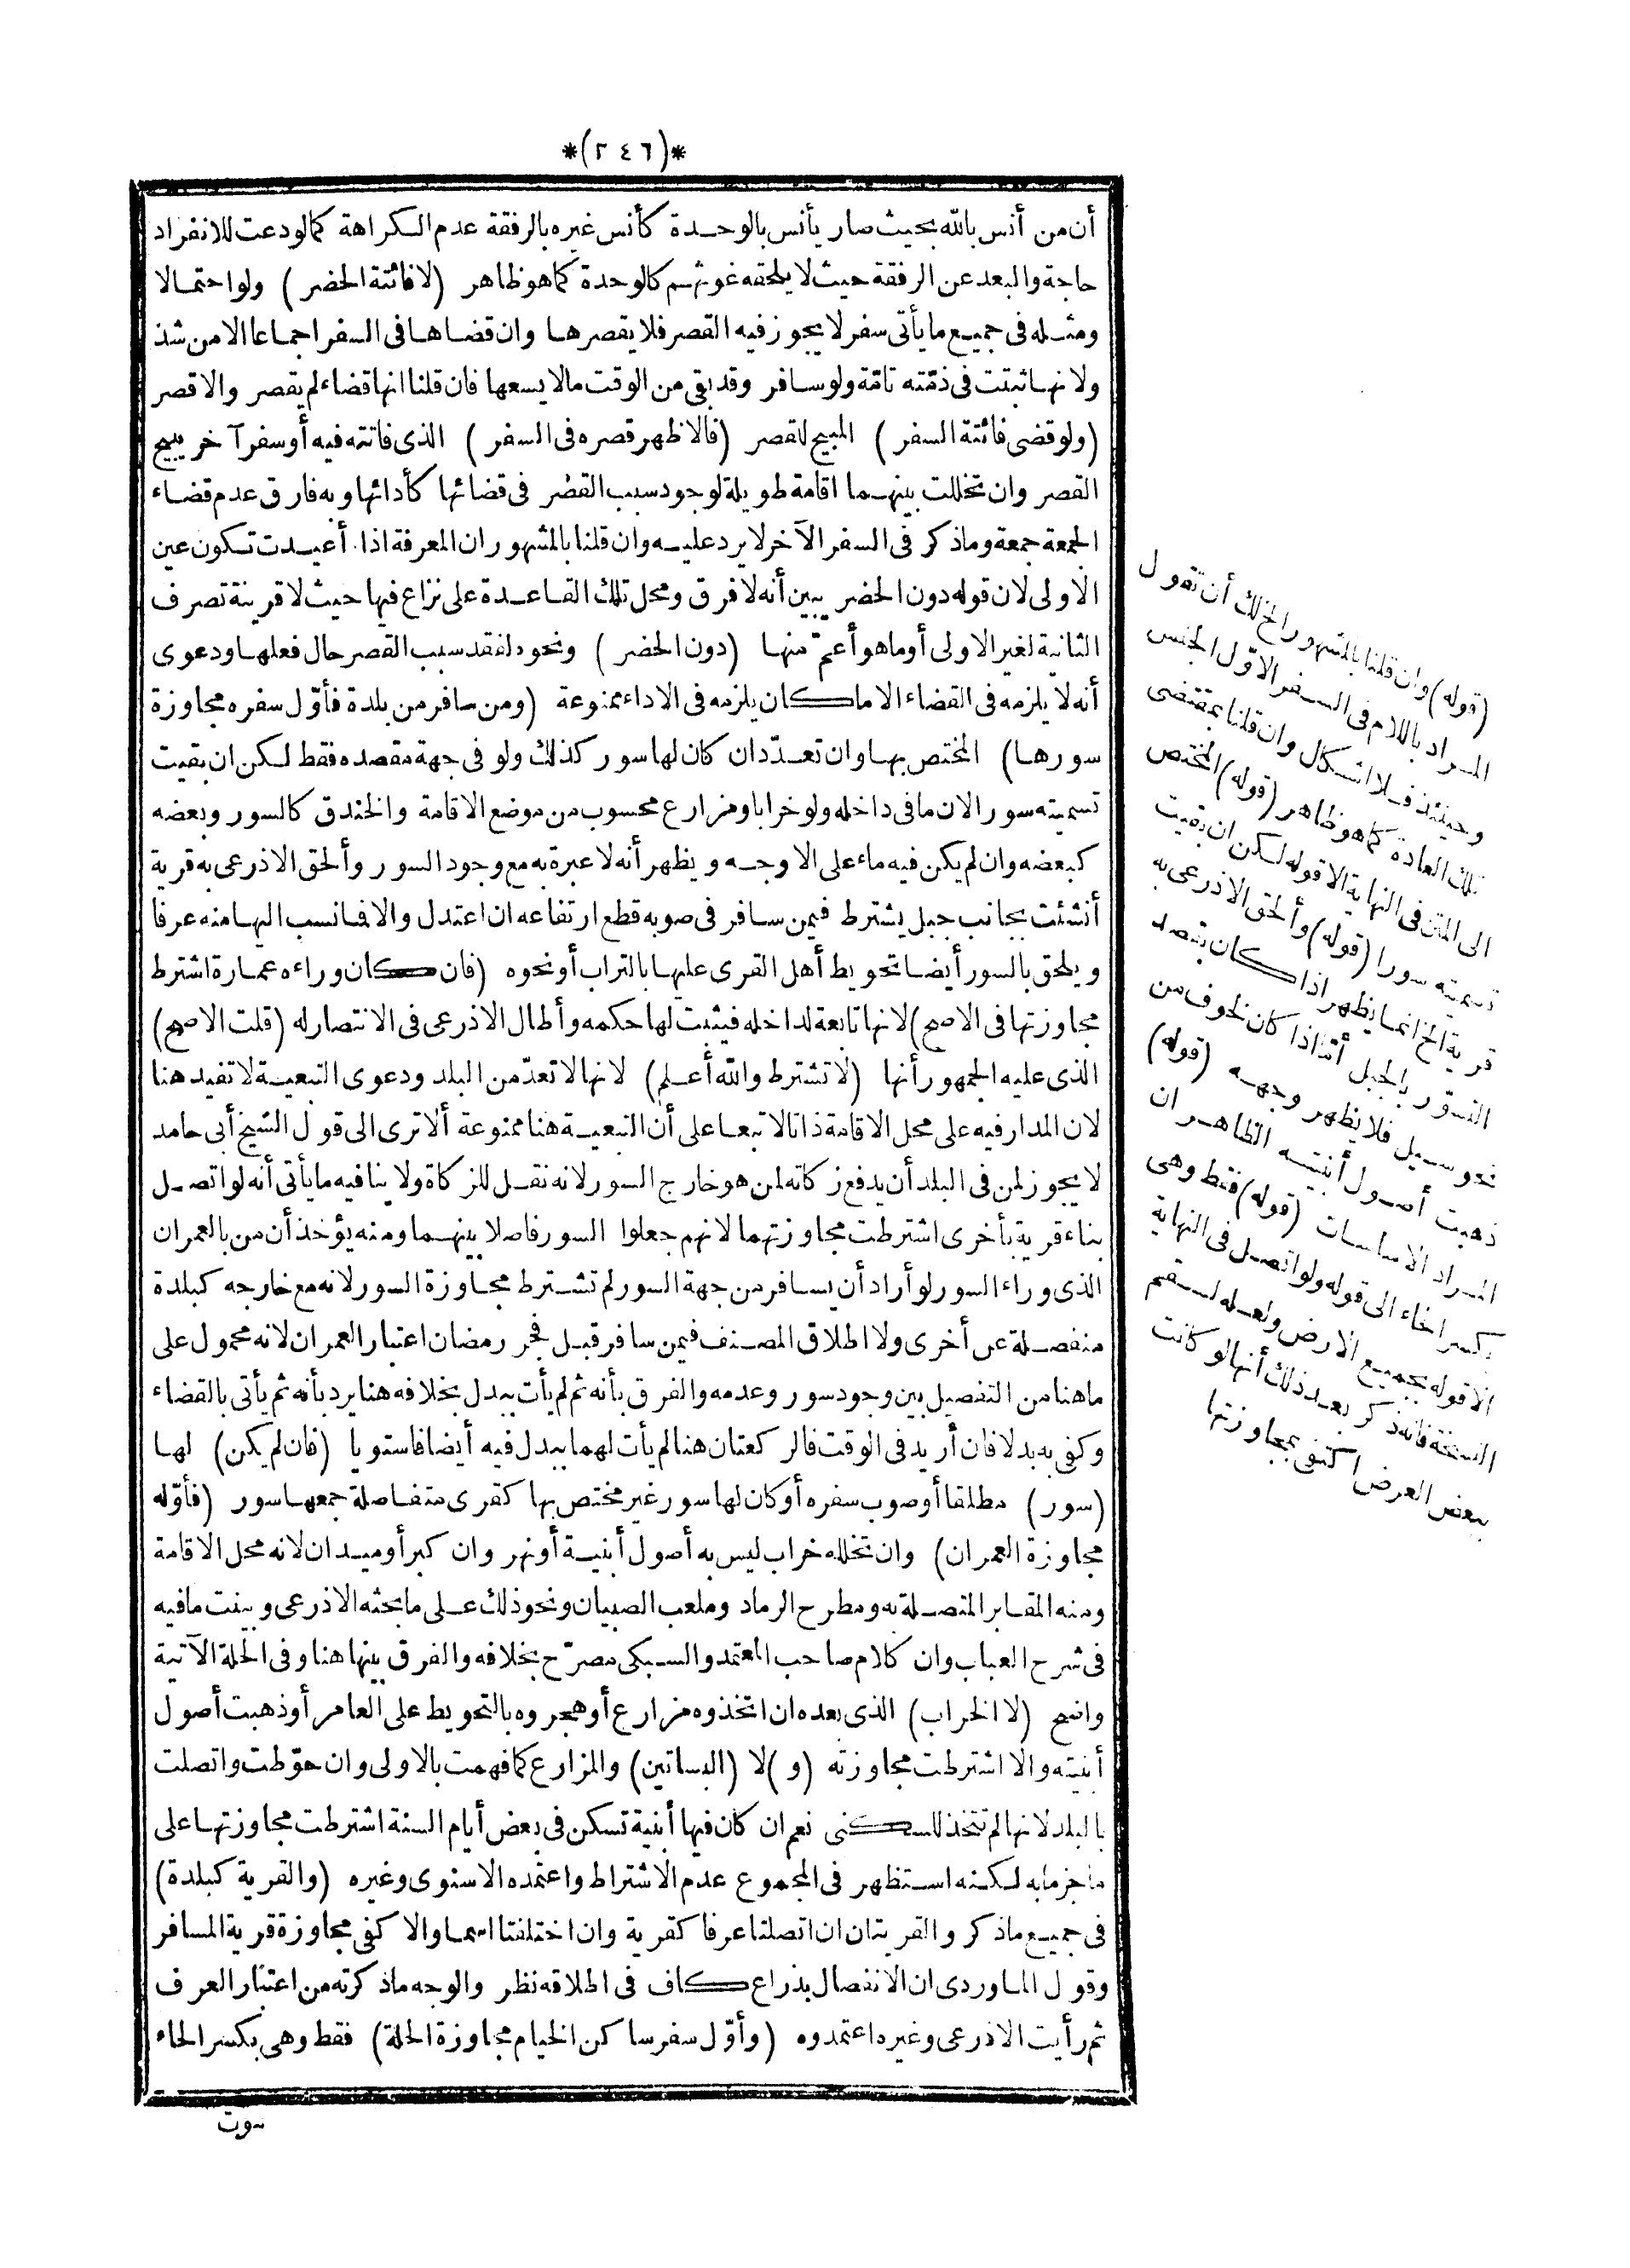 *(٢٤٦)*
أن من أنس بالله بحيث صار يأنس بالوحدة كأنس غيره بالرفقة عدم الكراهة كما لو دعت للانفراد
حاجة والبعد عن الرفقة حيث لا يلحقه غوثهم كالوحدة كما هو ظاهر (لا فائتة الحضر) ولو احتمالا
ومثله فى جميع ما يأتى سفر لا يجوز فيه القصر فلا يقصرها وان قضاها فى السفر اجماعا الا من شذ
ولانها ثبتت فى ذمّته تامّة ولو سافر وقد بقى من الوقت ما لا يسعها فان قلنا انها قضاء لم يقصر والا قصر
(ولو قضى فائتة السفر) المبيح للقصر (فالاظهر قصره فى السفر) الذى فاتته فيه أو سفر آخر يبيح
القصر وان تخللت بينهما اقامة طويلة لوجود سبب القصر فى قضائها كأدائها وبه فارق عدم قضاء
الجمعة جمعة وما ذكر فى السفر الآخر لا يرد عليه وان قلنا بالمشهور ان المعرفة اذا أعيدت تكون عين
الاولى لان قوله دون الحضر يبين أنه لا فرق ومحل تلك القاعدة على نزاع فيها حيث لا قرينة تصرف
الثانية لغير الاولى أو ما هو أعمّ منها (دون الحضر) ونحوه لفقد سبب القصر حال فعلها ودعوى
أنه لا يلزمه فى القضاء الا ما كان يلزمه فى الاداء ممنوعة (ومن سافر من بلدة فأوّل سفره مجاوزة
سورها) المختص بها وان تعدّد ان كان لها سور كذلك ولو فى جهة مقصده فقط لكن ان بقيت
تسميته سورا لان ما فى داخله ولو خرابا ومزارع محسوب من موضع الاقامة والخندق كالسور وبعضه
كبعضه وان لم يكن فيه ماء على الاوجه ويظهر أنه لا عبرة به مع وجود السور وألحق الاذرعى به قرية
أنشئت بجانب جبل يشترط فيمن سافر فى صوبه قطع ارتفاعه ان اعتدل والا فما نسب اليها منه عرفا
ويلحق بالسور أيضا تحويط أهل القرى عليها بالتراب أو نحوه (فان كان وراءه عمارة اشترط
مجاوزتها فى الاصح) لانها تابعة لداخله فيثبت لها حكمه وأطال الاذرعى فى الانتصار له (قلت الاصح)
الذى عليه الجمهور أنها (لا تشترط والله أعلم) لانها لا تعدّ من البلد ودعوى التبعية لا تفيد هنا
لان المدار فيه على محل الاقامة ذاتا لا تبعا على أن التبعية هنا ممنوعة ألا ترى الى قول الشيخ أبى حامد
لا يجوز لمن فى البلد أن يدفع زكاته لمن هو خارج السور لانه نقل للزكاة ولا ينافيه ما يأتى أنه لو اتصل
بناء قرية بأخرى اشترطت مجاوزتهما لانهم جعلوا السور فاصلا بينهما ومنه يؤخذ أن من بالعمران
الذى وراء السور لو أراد أن يسافر من جهة السور لم تشترط مجاوزة السور لانه مع خارجه كبلدة
منفصلة عن أخرى ولا اطلاق المصنف فيمن سافر قبل فجر رمضان اعتبار العمران لانه محمول على
ما هنا من التفصيل بين وجود سور وعدمه والفرق بأنه ثم لم يأت ببدل بخلافه هنا يرد بأنه ثم يأتى بالقضاء
وكفى به بدلا فان أريد فى الوقت فالركعتان هنا لم يأت لهما ببدل فيه أيضا فاستويا (فان لم يكن) لها
(سور) مطلقا أو صوب سفره أو كان لها سور غير مختص بها كقرى متفاصلة جمعها سور (فأوّله
مجاوزة العمران) وان تخلله خراب ليس به أصول أبنية أو نهر وان كبر أو ميدان لانه محل الاقامة
ومنه المقابر المتصلة به ومطرح الرماد وملعب الصبيان ونحو ذلك على ما بحثه الاذرعى وبينت ما فيه
فى شرح العباب وان كلام صاحب المعتمد والسبكى مصرّح بخلافه والفرق بينها هنا وفى الحلة الآتية
واضح (لا الخراب) الذى بعده ان اتخذوه مزارع أو هجروه بالتحويط على العامر أو ذهبت أصول
أبنيته والا اشترطت مجاوزته (و) لا (البساتين) والمزارع كما فهمت بالاولى وان حوّطت واتصلت
بالبلد لانها لم تتخذ للسكنى نعم ان كان فيها أبنية تسكن فى بعض أيام السنة اشترطت مجاوزتها على
ما جزما به لكنه استظهر فى المجموع عدم الاشتراط واعتمده الاسنوى وغيره (والقرية كبلدة)
فى جميع ما ذكر والقريتان ان اتصلتا عرفا كقرية وان اختلفتا اسما والا كفى مجاوزة قرية المسافر
وقول الماوردى ان الانفصال بذراع كاف فى اطلاقه نظر والوجه ما ذكرته من اعتبار العرف
ثم رأيت الاذرعى وغيره اعتمدوه (وأوّل سفر ساكن الخيام مجاوزة الحلة) فقط وهى بكسر الحاء
(قوله) وان قلنا بالمشهور الخ لك أن تقول
المراد باللام فى السفر الاوّل الجنس
وحينئذ فلا اشكال وان قلنا بمقتضى
تلك العادة كما هو ظاهر (قوله) المختص
الى المتن فى النهاية الا قوله لكن ان بقيت
تسميته سورا (قوله) وألحق الاذرعى به
قرية الخ انما يظهر اذا كان بقصد
التسوّر بالجبل أما اذا كان لخوف من
نحو سيل فلا يظهر وجهه (قوله)
ذهبت أصول أبنيته الظاهر ان
المراد الاساسات (قوله) فقط وهى
بكسر الحاء الى قوله ولو اتصل فى النهاية
الا قوله بجميع الارض ولعله لسقم
النسخة فانه ذكر بعد ذلك أنها لو كانت
ببعض العرض اكتفى بمجاوزتها